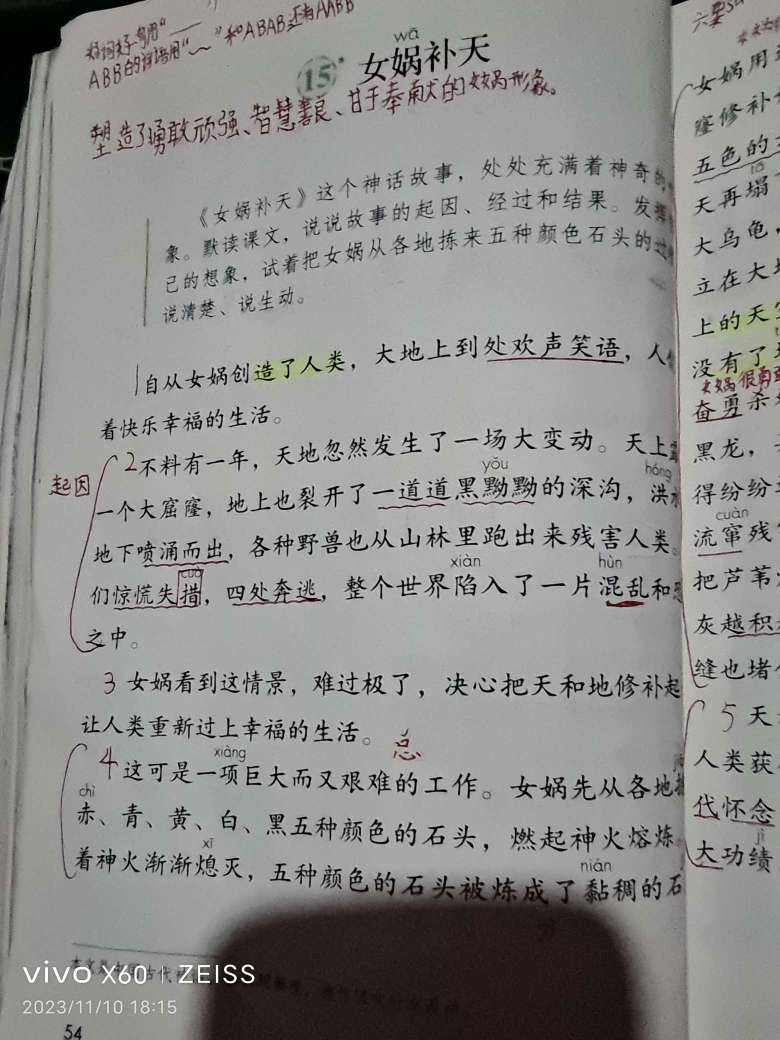 好词好句用“——”和ABAB还有AABB
ABB的词语用“﹏”
wā
15* 女娲补天
塑造了勇敢顽强、智慧善良、甘于奉献的女娲形象。
《女娲补天》这个神话故事，处处充满着神奇的
象。默读课文，说说故事的起因、经过和结果。发挥
己的想象，试着把女娲从各地拣来五种颜色石头的过
说清楚、说生动。
1自从女娲创造了人类，大地上到处欢声笑语，人
着快乐幸福的生活。
起因
2不料有一年，天地忽然发生了一场大变动。天上
yǒu
hóng
一个大窟窿，地上也裂开了一道道黑黝黝的深沟，洪
地下喷涌而出，各种野兽也从山林里跑出来残害人类。
cuò
xiàn
hùn
们惊慌失措，四处奔逃，整个世界陷入了一片混乱和
之中。
3 女娲看到这情景，难过极了，决心把天和地修补起
让人类重新过上幸福的生活。
总
xiàng
4这可是一项巨大而又艰难的工作。女娲先从各地
chì
赤、青、黄、白、黑五种颜色的石头，燃起神火熔炼。
xī
着神火渐渐熄灭，五种颜色的石头被炼成了黏稠的石
nián
54
女娲用
窿修补
五色的
tā
天再塌
大乌龟，
立在大
上的天
没有了
女娲很勇
奋勇杀
黑龙，
得纷纷
cuàn
流窜残
把芦苇
灰越积
缝也堵
5天
人类获
代怀念
jì
大功绩
vivo X60 ZEISS
2023/11/10 18:15